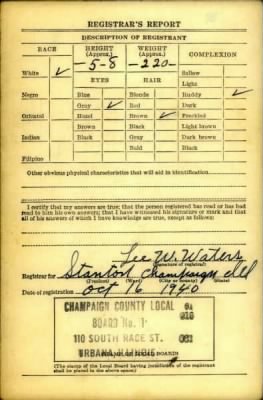 REGISTRAR'S REPORT
DESCRIPTION OF REGISTRANT
RACE HEIGHT (Approx.) WEIGHT (Approx.) COMPLEXION
White ✓ 5-8 220 Sallow
Light
EYES HAIR
Negro Blue Blonde Ruddy ✓
Gray ✓ Red Dark
Oriental Hazel Brown ✓ Freckled
Brown Black Light brown
Indian Black Gray Dark brown
Bald Black
Filipino
Other obvious physical characteristics that will aid in identification
I certify that my answers are true; that the person registered has read or has had
read to him his own answers; that I have witnessed his signature or mark and that
all of his answers of which I have knowledge are true, except as follows:
Lee W. Waters
(Signature of registrar)
Registrar for Stanton Champaign Ill
(Precinct) (Ward) (City or county) (State)
Date of registration Oct 16 1940
CHAMPAIGN COUNTY LOCAL
BOARD No. 1
110 SOUTH RACE ST.
URBANA, ILLINOIS
(The stamp of the Local Board having jurisdiction of the registrant
shall be placed in the above space.)